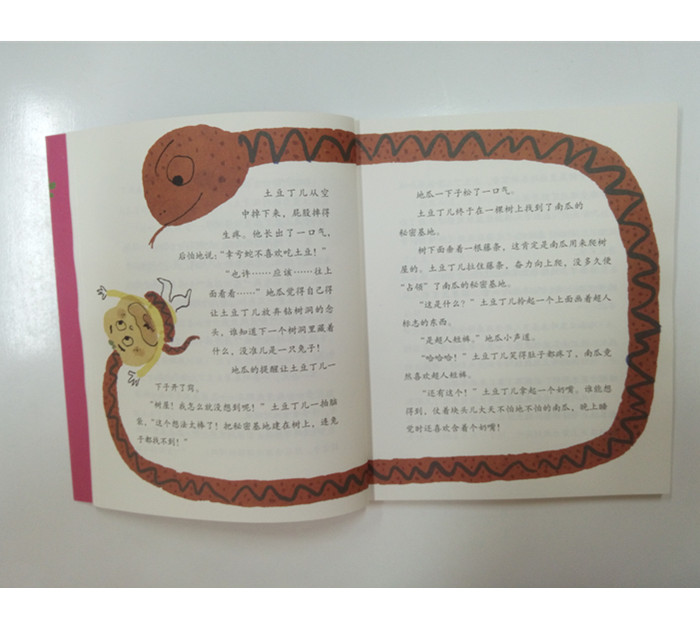 土豆丁儿从空
中掉下来，屁股摔得
生疼。他长出了一口气，
后怕地说：“幸亏蛇不喜欢吃土豆！”
“也许……应该……往上
面看看……”地瓜觉得自己得
让土豆丁儿放弃钻树洞的念
头，谁知道下一个树洞里藏着
什么，没准儿是一只兔子！
地瓜的提醒让土豆丁儿一
下子开了窍。
“树屋！我怎么就没想到呢！”土豆丁儿一拍脑
袋，“这个想法太棒了！把秘密基地建在树上，连兔
子都找不到！”
地瓜一下子松了一口气。
土豆丁儿终于在一棵树上找到了南瓜的
秘密基地。
树下面垂着一根藤条，这肯定是南瓜用来爬树
屋的。土豆丁儿拉住藤条，奋力向上爬，没多久便
“占领”了南瓜的秘密基地。
“这是什么？”土豆丁儿拎起一个上面画着超人
标志的东西。
“是超人短裤。”地瓜小声道。
“哈哈哈！”土豆丁儿笑得肚子都疼了，南瓜竟
然喜欢超人短裤。
“还有这个！”土豆丁儿拿起一个奶嘴。谁能想
得到，仗着块头儿大天不怕地不怕的南瓜，晚上睡
觉时还喜欢含着个奶嘴！